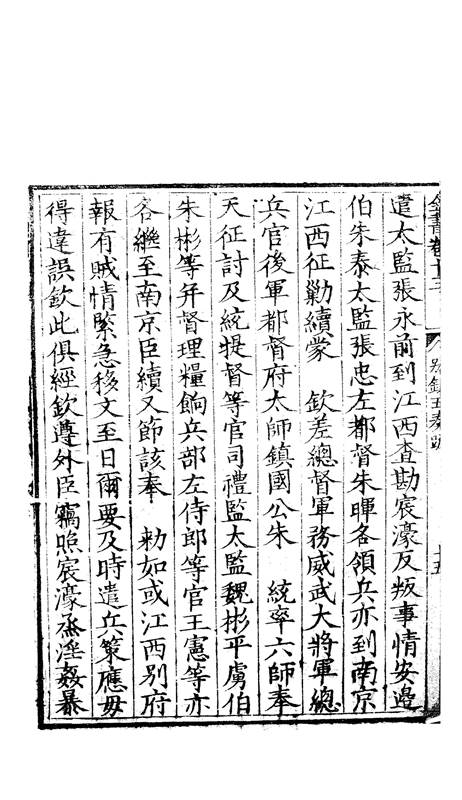 全書卷十三 別録五奏疏 十五
遣太監張永前到江西查勘宸濠反叛事情安邉
伯朱泰太監張忠左都督朱暉各領兵亦到南京
江西征勦續蒙 欽差總督軍務威武大將軍總
兵官後軍都督府太師鎮國公朱 統率六師奉
天征討及統提督等官司禮監太監魏彬平虜伯
朱彬等并督理糧餉兵部左侍郎等官王憲等亦
各繼至南京臣續又節該奉 勅如或江西别府
報有賊情緊急移文至日爾要及時遣兵策應毋
得違誤欽此俱經欽遵外臣竊照宸濠烝淫姦暴